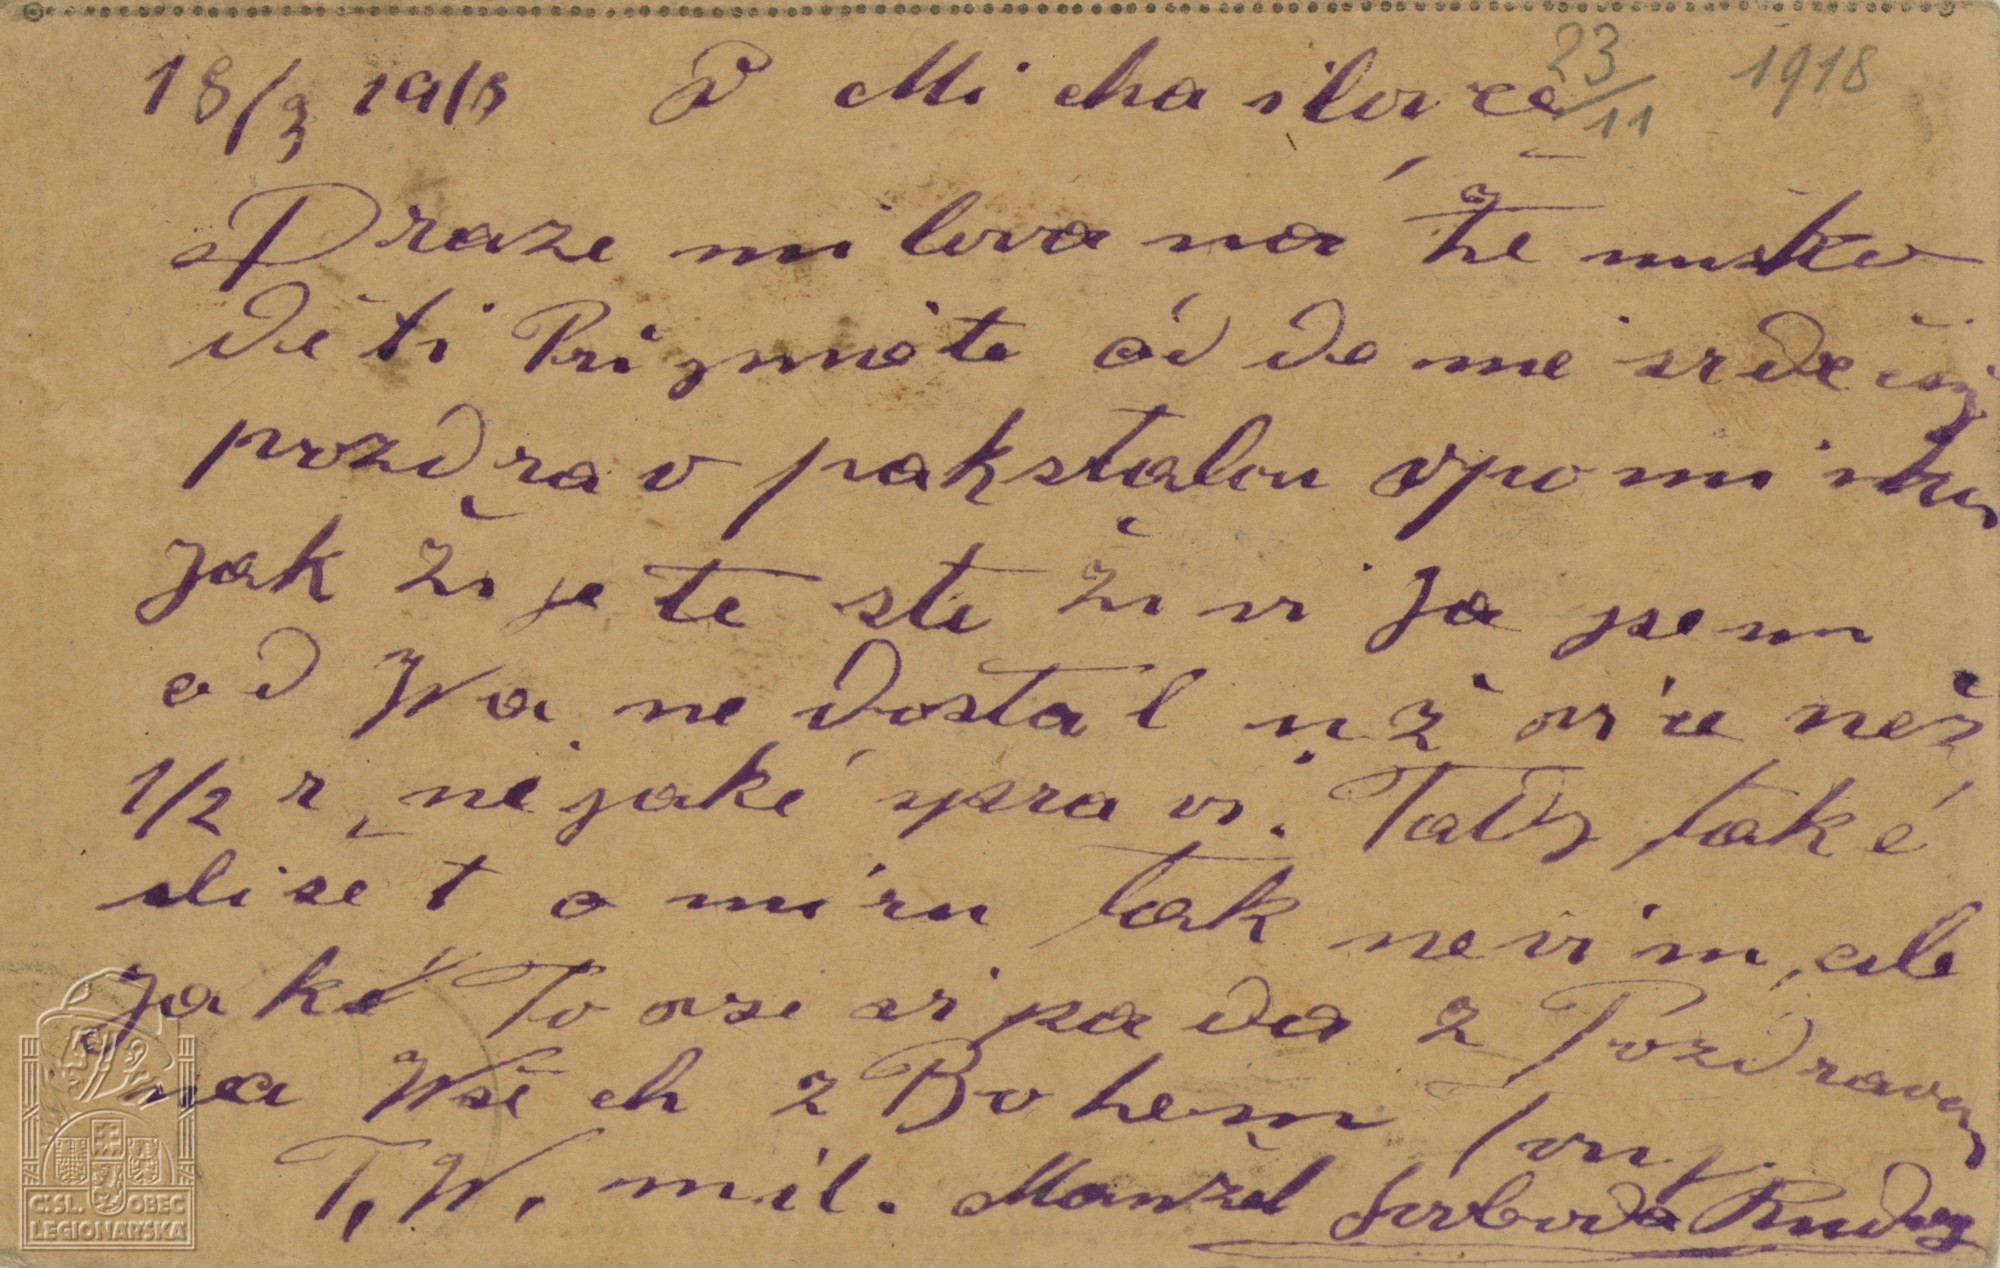 18/3 1918 P Michailovce 23/11 1918
Draze milovaná Ženuško
děti Přizmněte óddemne srdečný
pozdrav pakstalou vpomínku
Jak žijete ste živi Ja jsem
od Wa, nedostal už více než
1/2 r, nejaké spravi. Tady také
slišet o míru tak nevím, ale
jaké To vse vipada z Pozdravem
na Wšech z Bohem Tvuj
T, W, mil. Manžel Svoboda Rudolf
ČSL. OBEC
LEGIONÁŘSKÁ